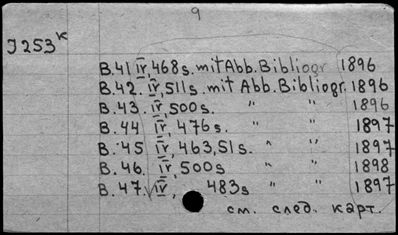 9
J 253ᴷ
B.41 IV, 468 s. mit Abb. Bibliogr 1896
B.42. IV, 511 s. mit Abb. Bibliogr. 1896
B.43. IV, 500 s. " " 1896
B.44 IV, 476 s. " " 1897
B.45 IV, 463, 51 s. " " 1897
B.46. IV, 500 s " " 1898
B.47. IV, 483 s " " 1897
см. след. карт.